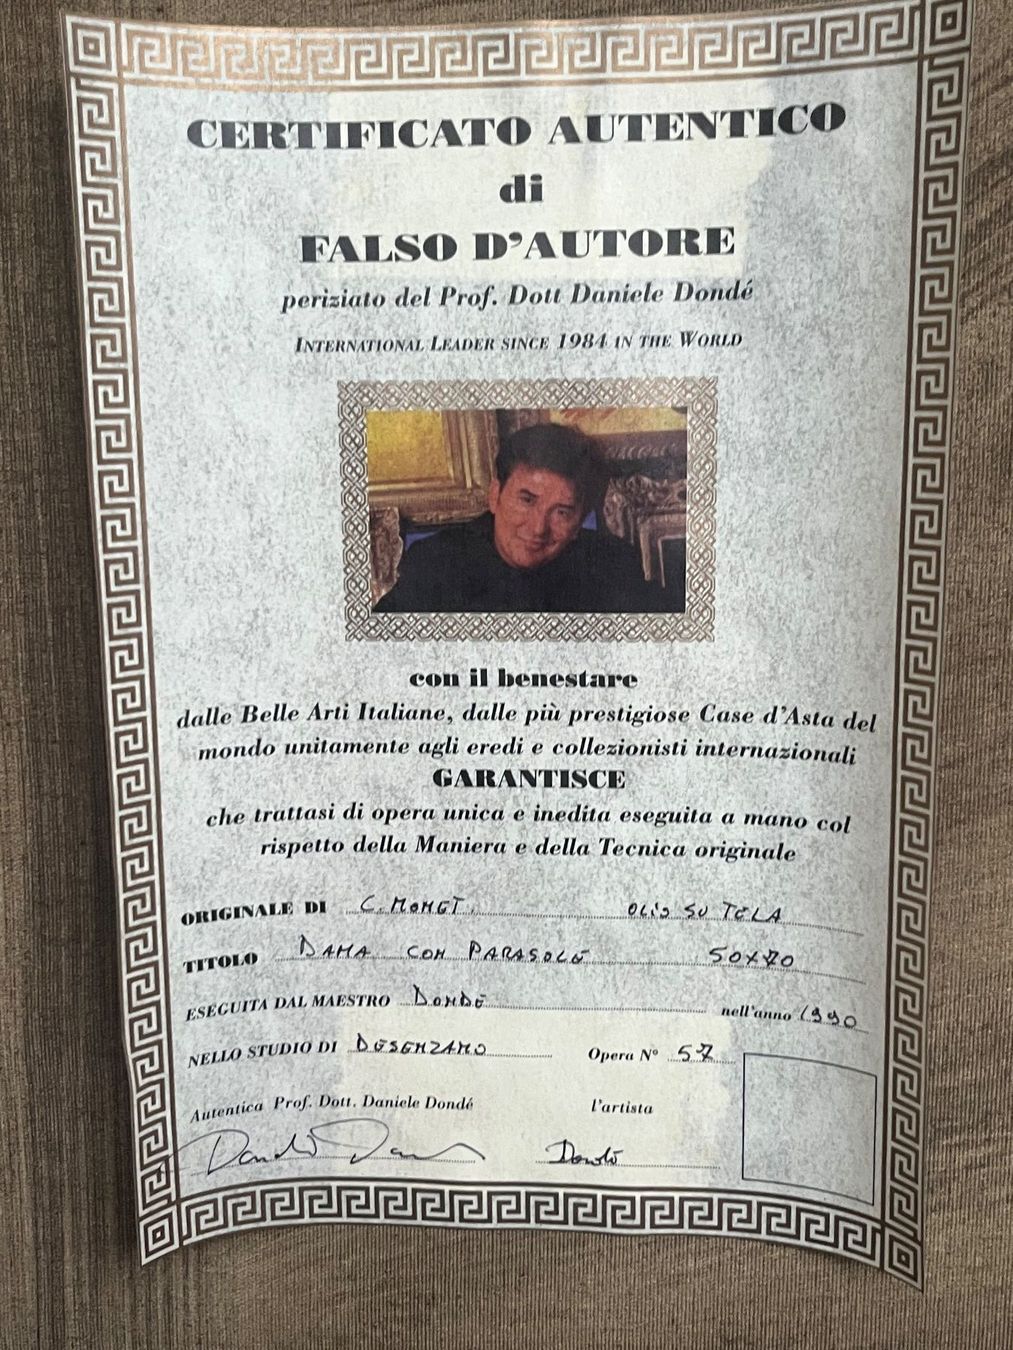 CERTIFICATO AUTENTICO
di
FALSO D'AUTORE
periziato del Prof. Dott Daniele Dondé
INTERNATIONAL LEADER SINCE 1984 IN THE WORLD
con il benestare
dalle Belle Arti Italiane, dalle più prestigiose Case d'Asta del
mondo unitamente agli eredi e collezionisti internazionali
GARANTISCE
che trattasi di opera unica e inedita eseguita a mano col
rispetto della Maniera e della Tecnica originale
ORIGINALE DI C. MONET. OLIO SU TELA
TITOLO DAMA CON PARASOLE 50X70
ESEGUITA DAL MAESTRO DONDÈ nell'anno 1990
NELLO STUDIO DI DESENZANO Opera N° 57
Autentica Prof. Dott. Daniele Dondé l'artista
Dondè